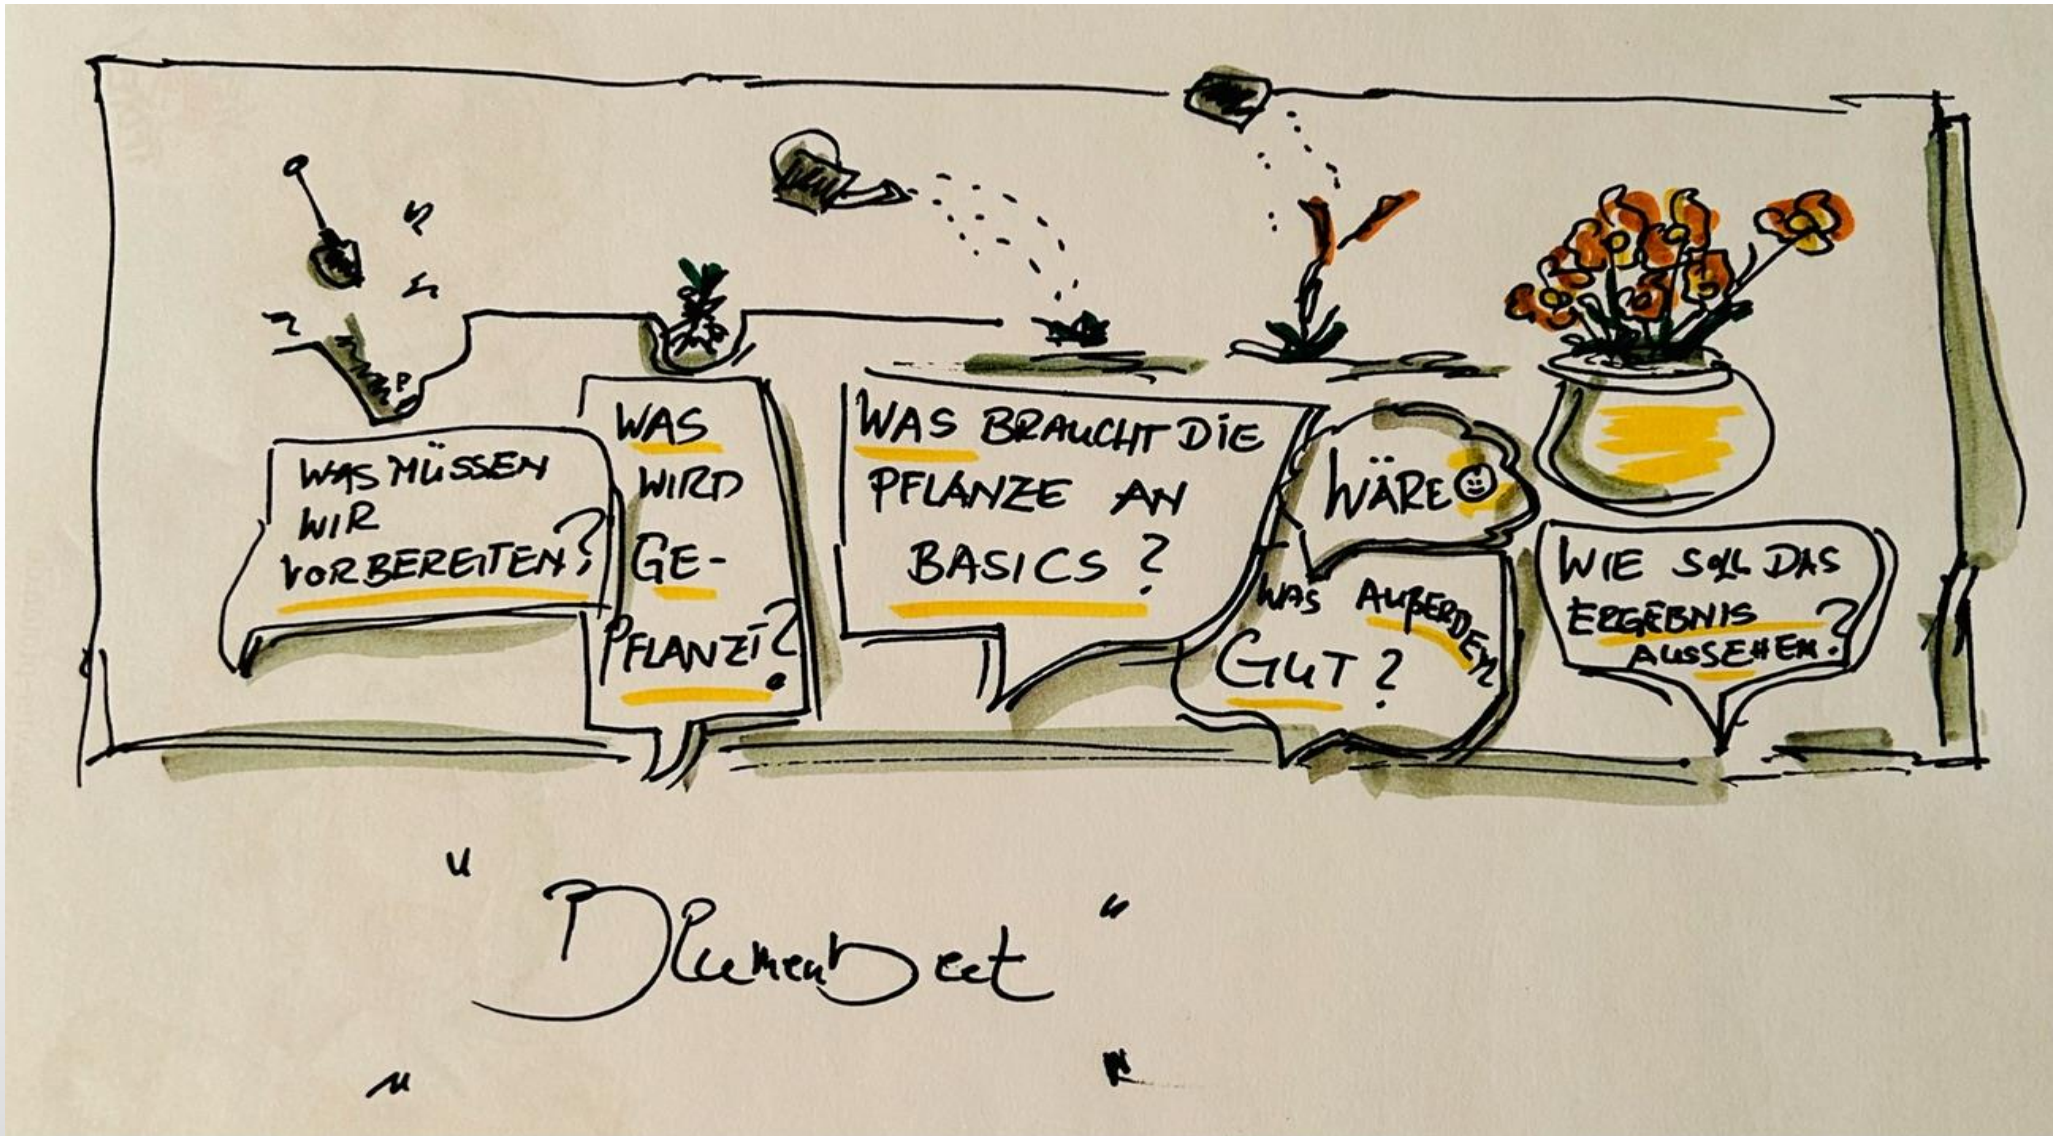 WAS MÜSSEN
WIR
VORBEREITEN?
WAS
WIRD
GE-
PFLANZT?
WAS BRAUCHT DIE
PFLANZE AN
BASICS?
WÄRE
WAS AUßERDEM
GUT?
WIE SOLL DAS
ERGEBNIS
AUSSEHEN?
"Blumenbeet"